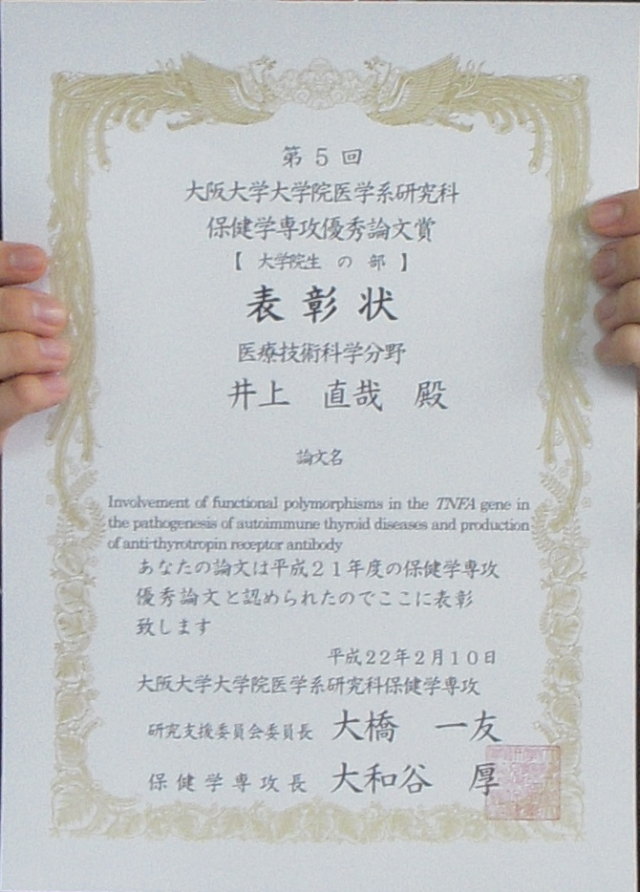 第５回
大阪大学大学院医学系研究科
保健学専攻優秀論文賞
【 大学院生 の 部 】
表彰状
医療技術科学分野
井上 直哉 殿
論文名
Involvement of functional polymorphisms in the TNFA gene in
the pathogenesis of autoimmune thyroid diseases and production
of anti-thyrotropin receptor antibody
あなたの論文は平成２１年度の保健学専攻
優秀論文と認められたのでここに表彰
致します
平成22年２月１０日
大阪大学大学院医学系研究科保健学専攻
研究支援委員会委員長 大橋 一友
保健学専攻長 大和谷 厚